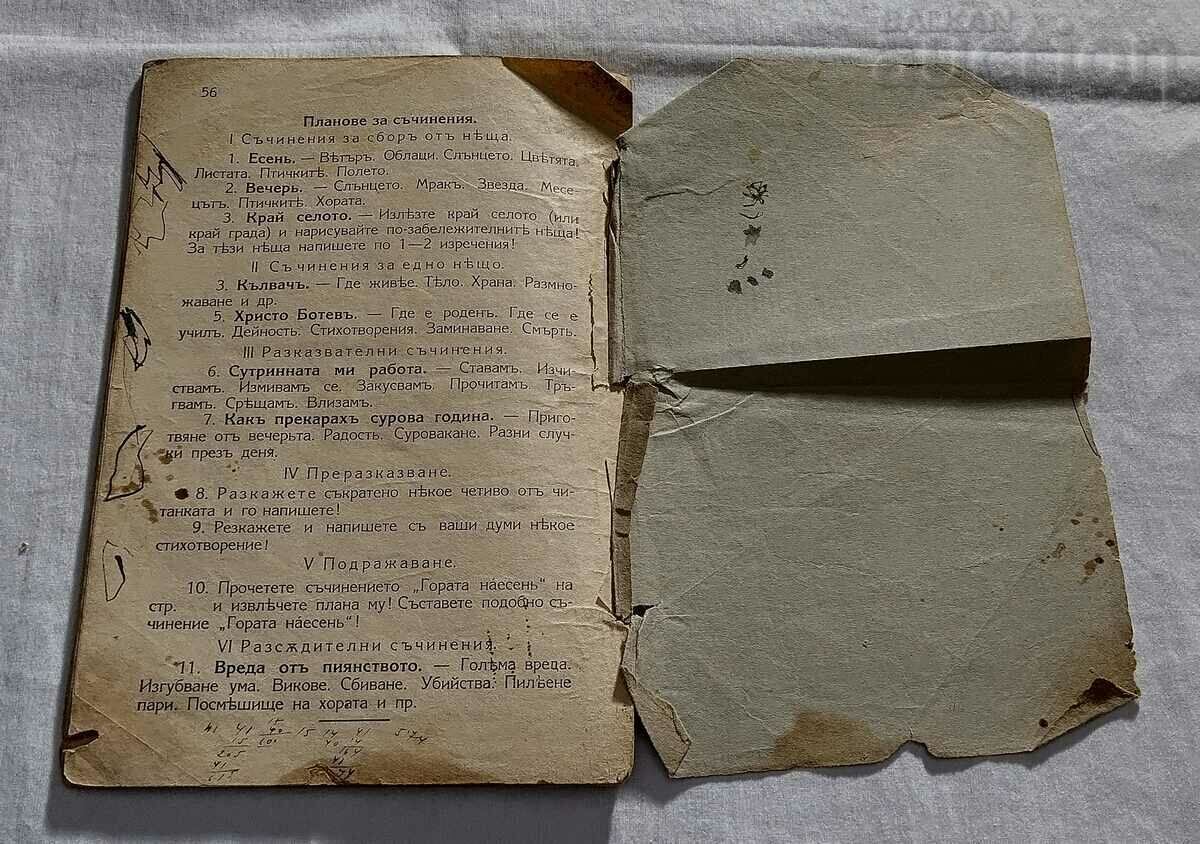 BALKAN
56
Планове за съчинения.
I Съчинения за сборъ отъ нѣща.
1. Есень. — Вѣтъръ. Облаци. Слънцето. Цвѣтята.
Листата. Птичкитѣ. Полето.
2. Вечерь. — Слънцето. Мракъ. Звезда. Месе-
цътъ. Птичкитѣ. Хората.
3. Край селото. — Излѣзте край селото (или
край града) и нарисувайте по-забележителнитѣ нѣща!
За тѣзи нѣща напишете по 1—2 изречения!
II Съчинения за едно нѣщо.
3. Кълвачъ. — Где живѣе. Тѣло. Храна. Размно-
жаване и др.
5. Христо Ботевъ. — Где е роденъ. Где се е
училъ. Дейность. Стихотворения. Заминаване. Смърть.
III Разказвателни съчинения.
6. Сутринната ми работа. — Ставамъ. Изчи-
ствамъ. Измивамъ се. Закусвамъ. Прочитамъ. Тръ-
гвамъ. Срѣщамъ. Влизамъ.
7. Какъ прекарахъ сурова година. — Приго-
твяне отъ вечерьта. Радость. Суровакане. Разни случ-
ки презъ деня.
IV Преразказване.
8. Разкажете съкратено нѣкое четиво отъ чи-
танката и го напишете!
9. Резкажете и напишете съ ваши думи нѣкое
стихотворение!
V Подражаване.
10. Прочетете съчинението „Гората на́есень“ на
стр. и извлѣчете плана му! Съставете подобно съ-
чинение „Гората на́есень“!
VI Разсѫдителни съчинения.
11. Вреда отъ пиянството. — Голѣма вреда.
Изгубване ума. Викове. Сбиване. Убийства. Пилѣене
пари. Посмѣшище на хората и пр.